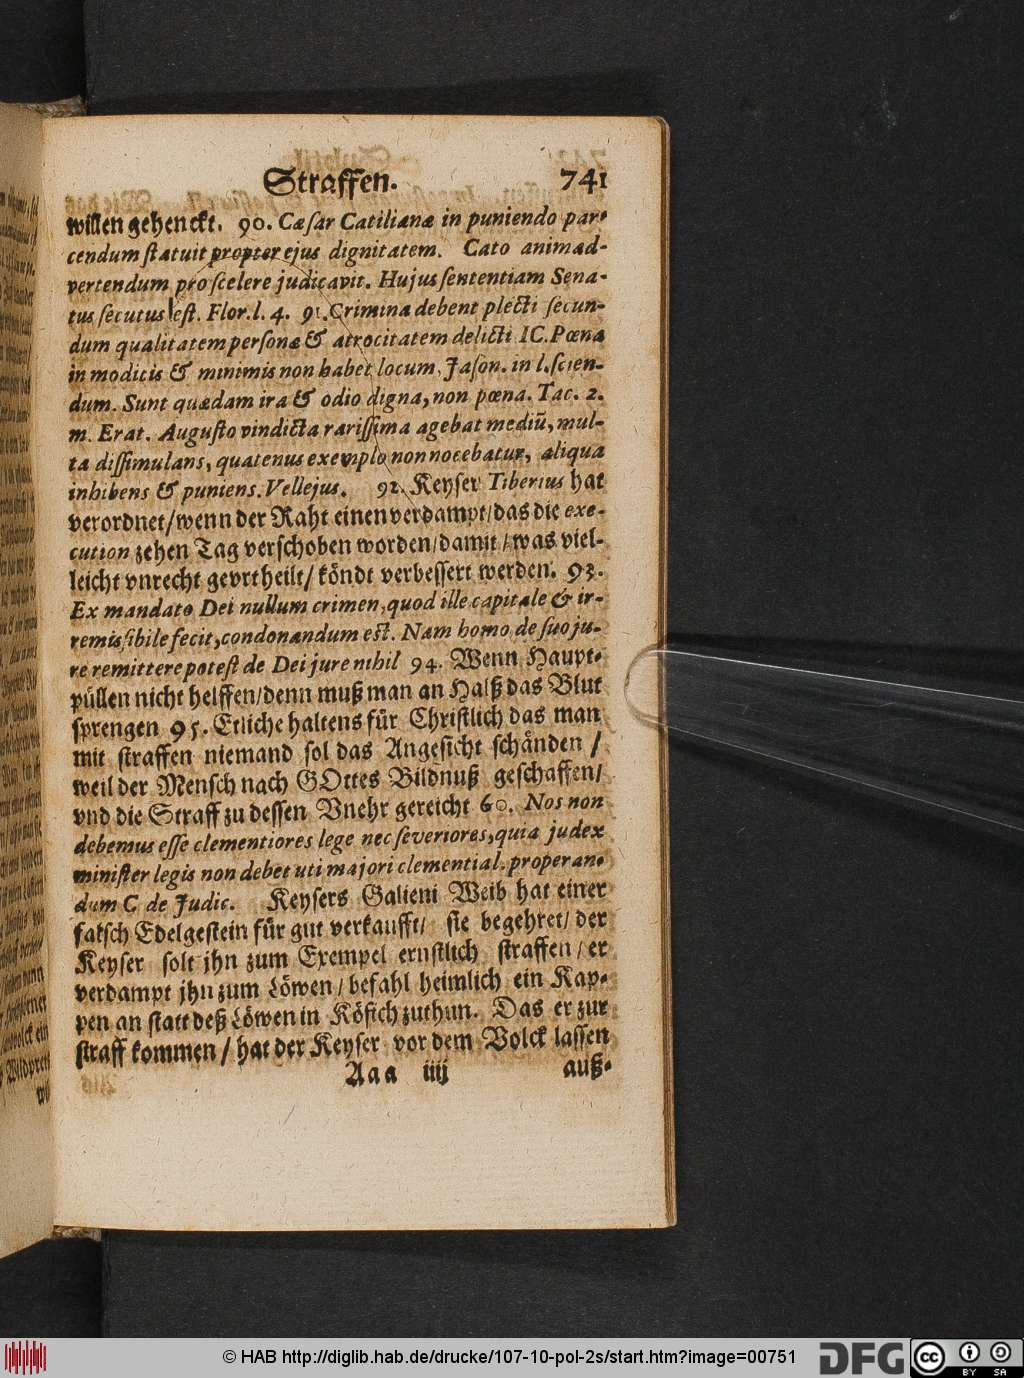 Straffen. 741
willen gehenckt. 90. Cæsar Catilianæ in puniendo par-
cendum statuit propter ejus dignitatem. Cato animad-
vertendum pro scelere judicavit. Hujus sententiam Sena-
tus secutus est. Flor. l. 4. 91. Crimina debent plecti secun-
dum qualitatem personæ & atrocitatem delicti IC. Pœna
in modicis & minimis non habet locum, Jason. in l. scien-
dum. Sunt quædam ira & odio digna, non pœna. Tac. 2.
m. Erat. Augusto vindicta rarissima agebat mediū, mul-
ta dissimulans, quatenus exemplo non nocebatur, aliqua
inhibens & puniens. Vellejus. 92. Keyser Tiberius hat
verordnet/wenn der Raht einen verdampt/das die exe-
cution zehen Tag verschoben worden/damit/was viel-
leicht vnrecht gevrtheilt/köndt verbessert werden. 93.
Ex mandato Dei nullum crimen, quod ille capitale & ir-
remissibile fecit, condonandum est. Nam homo de suo ju-
re remittere potest de Dei jure nihil 94. Wenn Haupt-
püllen nicht helffen/denn muß man an Halß das Blut
sprengen 95. Etliche haltens für Christlich das man
mit straffen niemand sol das Angesicht schänden /
weil der Mensch nach GOttes Bildnuß geschaffen/
vnd die Straff zu dessen Vnehr gereicht 60. Nos non
debemus esse clementiores lege nec severiores, quia judex
minister legis non debet uti majori clementia l. properan-
dum C de Judic. Keysers Galieni Weib hat einer
falsch Edelgestein für gut verkaufft/ sie begehret/ der
Keyser solt jhn zum Exempel ernstlich straffen/er
verdampt jhn zum Löwen/befahl heimlich ein Kap-
pen an statt deß Löwen in Köfich zuthun. Das er zur
straff kommen/hat der Keyser vor dem Volck lassen
Aaa iiij auß-
© HAB http://diglib.hab.de/drucke/107-10-pol-2s/start.htm?image=00751
DFG
cc BY SA